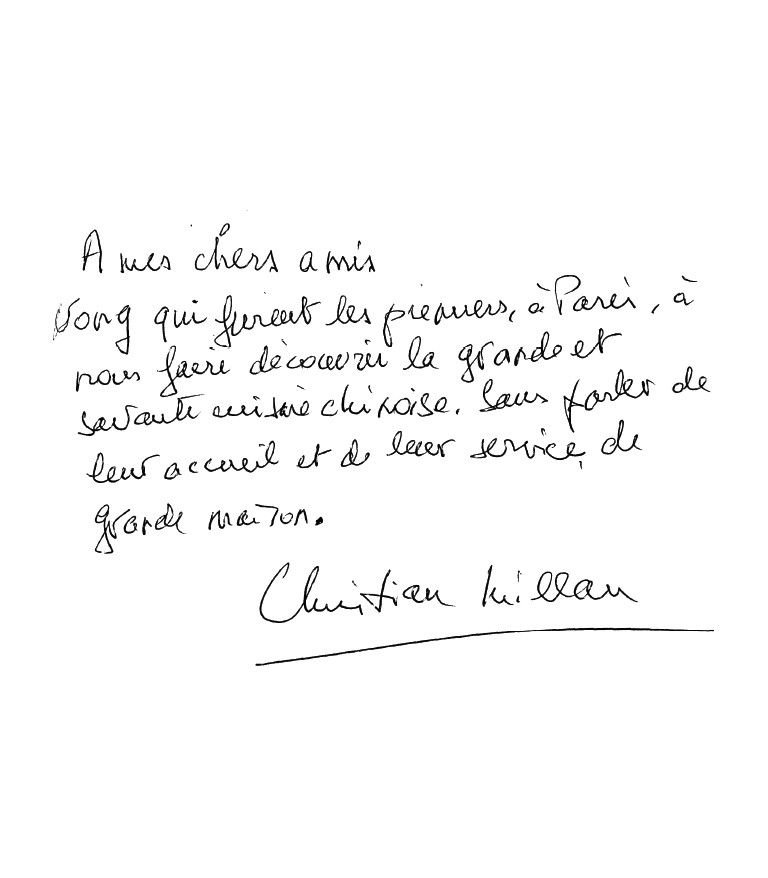 A mes chers amis
Vong qui furent les premiers, à Paris, à
nous faire découvrir la grande et
savante cuisine chinoise. Sans parler de
leur accueil et de leur service, de
grande maison.
Christian Millau